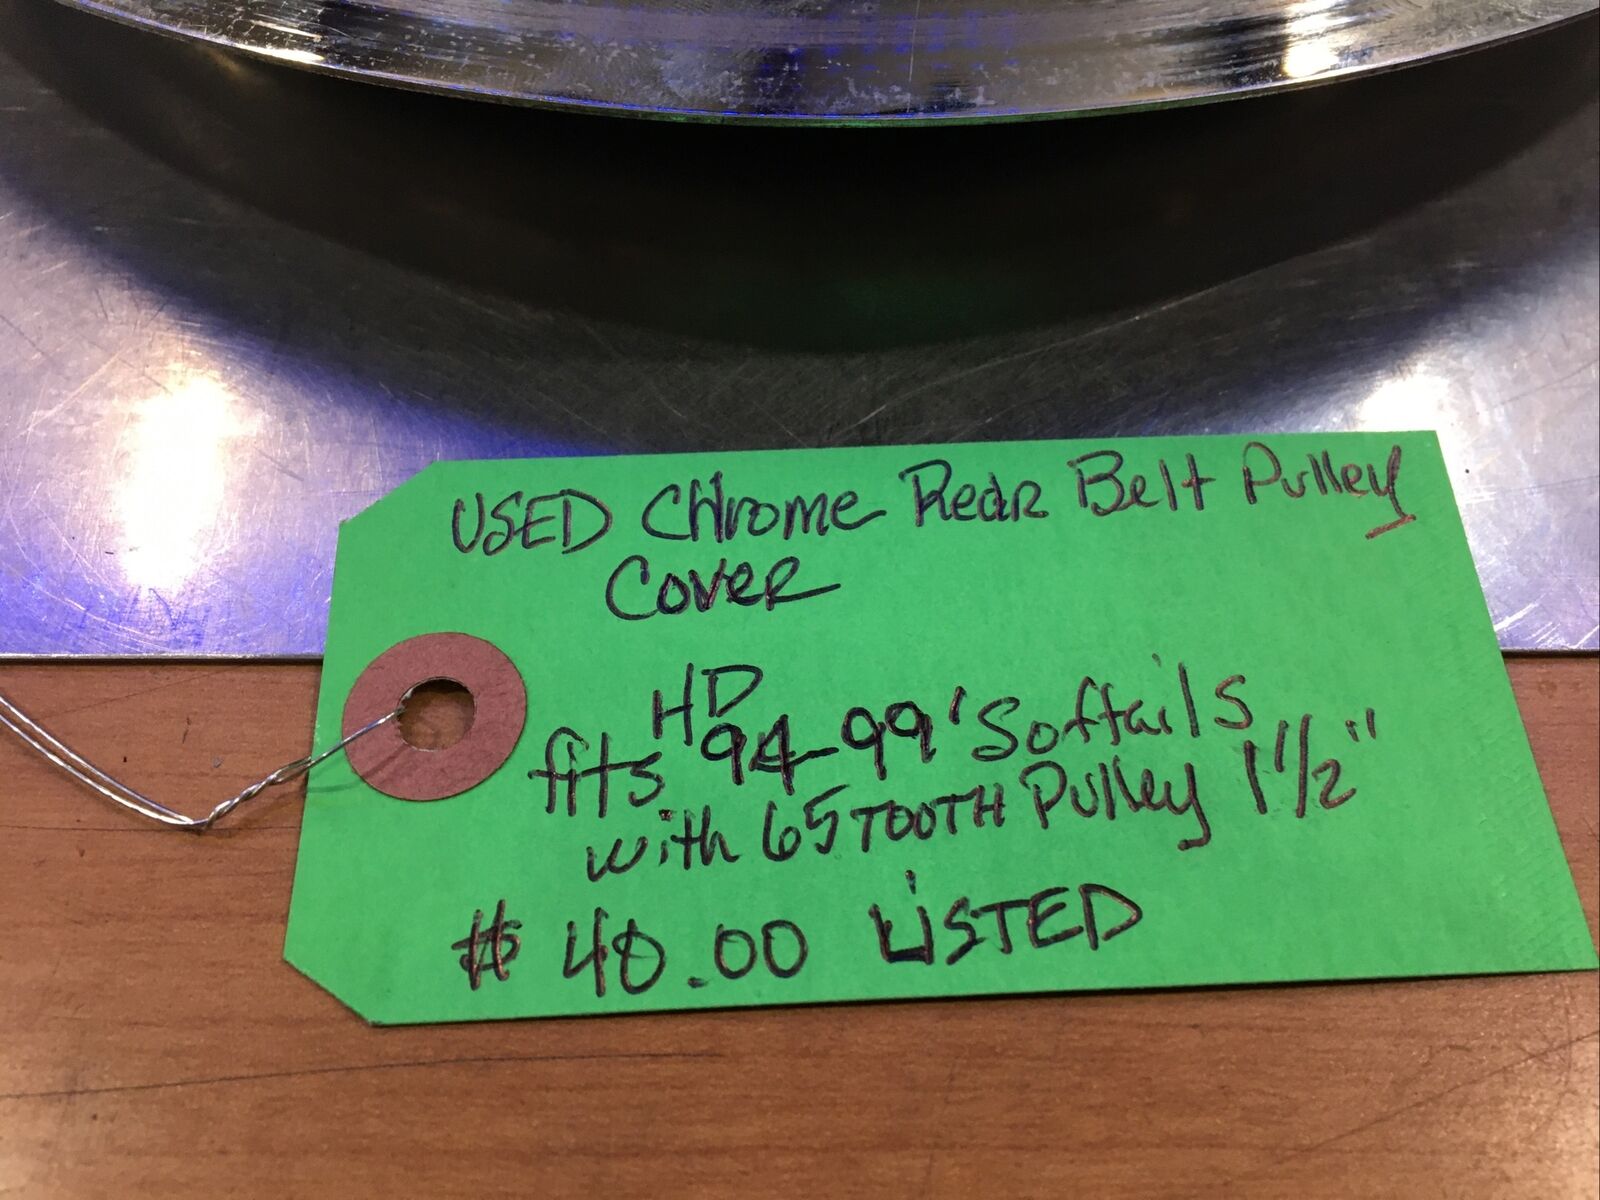 USED CHrome ReaR Belt Pulley
CoveR
HD
fits 94-99' Softails
with 65 TOOTH Pulley 1 1/2"
$ 40.00 LiSTED